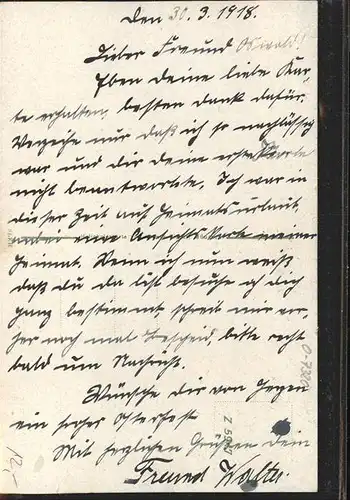 Den 30. 3. 1918.
Lieber Freund Oswald!
Eben deine liebe Kar-
te erhalten, besten dank dafür.
Verzeihe nur daß ich so nachlässig
war und dir deine erste Karte
nicht beantwortete. Ich war in
dieser Zeit auf Heimatsurlaub,
anbei eine Ansichtskarte meiner
Heimat. Wenn ich nun weiß
daß du da bist besuche ich dich
ganz bestimmt schreib mir vor-
her noch mal bescheid, bitte recht
bald um Nachricht.
Wünsche dir von Herzen
ein frohes Osterfest
Mit herzlichen Grüßen dein
Freund Walter
12,-